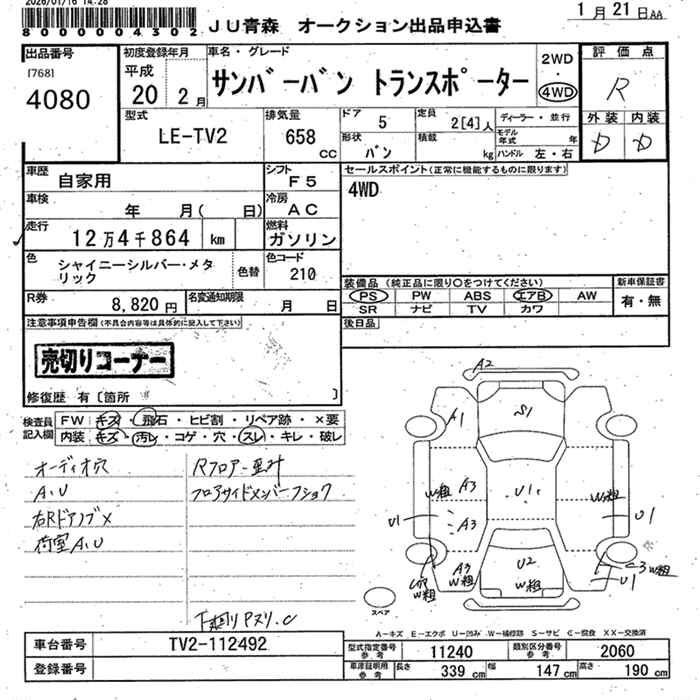 2026/01/16 14:28
8000004302
JU青森 オークション出品申込書
1月21日AA
出品番号
[768]
4080
初度登録年月
平成
20 2月
車名・グレード
サンバーバン トランスポーター
2WD
・
4WD
評価点
R
外装 内装
D D
型式
LE-TV2
排気量
658
cc
ドア
5
形状
バン
定員
2[4]人
積載
kg
ディーラー・並行
モデル年式 年
ハンドル 左・右
車歴
自家用
シフト
F5
セールスポイント(正常に機能するものに限ります)
4WD
車検
年 月( 日)
冷房
AC
走行
12万4千864 km
燃料
ガソリン
色
シャイニーシルバー・メタリック
色替
色コード
210
装備品(純正品に限り○をつけてください)
PS PW ABS エアB AW
SR ナビ TV カワ
新車保証書
有・無
R券
8,820円
名変通知期限
月 日
後日品
注意事項申告欄(不具合内容等は具体的に記入して下さい)
売切りコーナー
修復歴 有〔箇所 〕
検査員記入欄
FW キズ・飛石・ヒビ割・リペア跡・×要
内装 キズ・汚レ・コゲ・穴・スレ・キレ・破レ
オーディオ穴
A、U
右Rドアノブメ
荷室A、U
Rフロアー歪ミ
フロアサイドメンバーフショク
下廻りサビ、C
A2
A1
S1
W組
A3
U1
A3
U1
W組
U1
A3
W組
U2
W組
C3 W組
U1
スペア
A-キズ E-エクボ U-凹み W-補修跡 S-サビ C-腐食 XX-交換済
車台番号
TV2-112492
登録番号
型式指定番号
参考
11240
類別区分番号
参考
2060
車庫証明用
参考
長さ
339 cm
幅
147 cm
高さ
190 cm